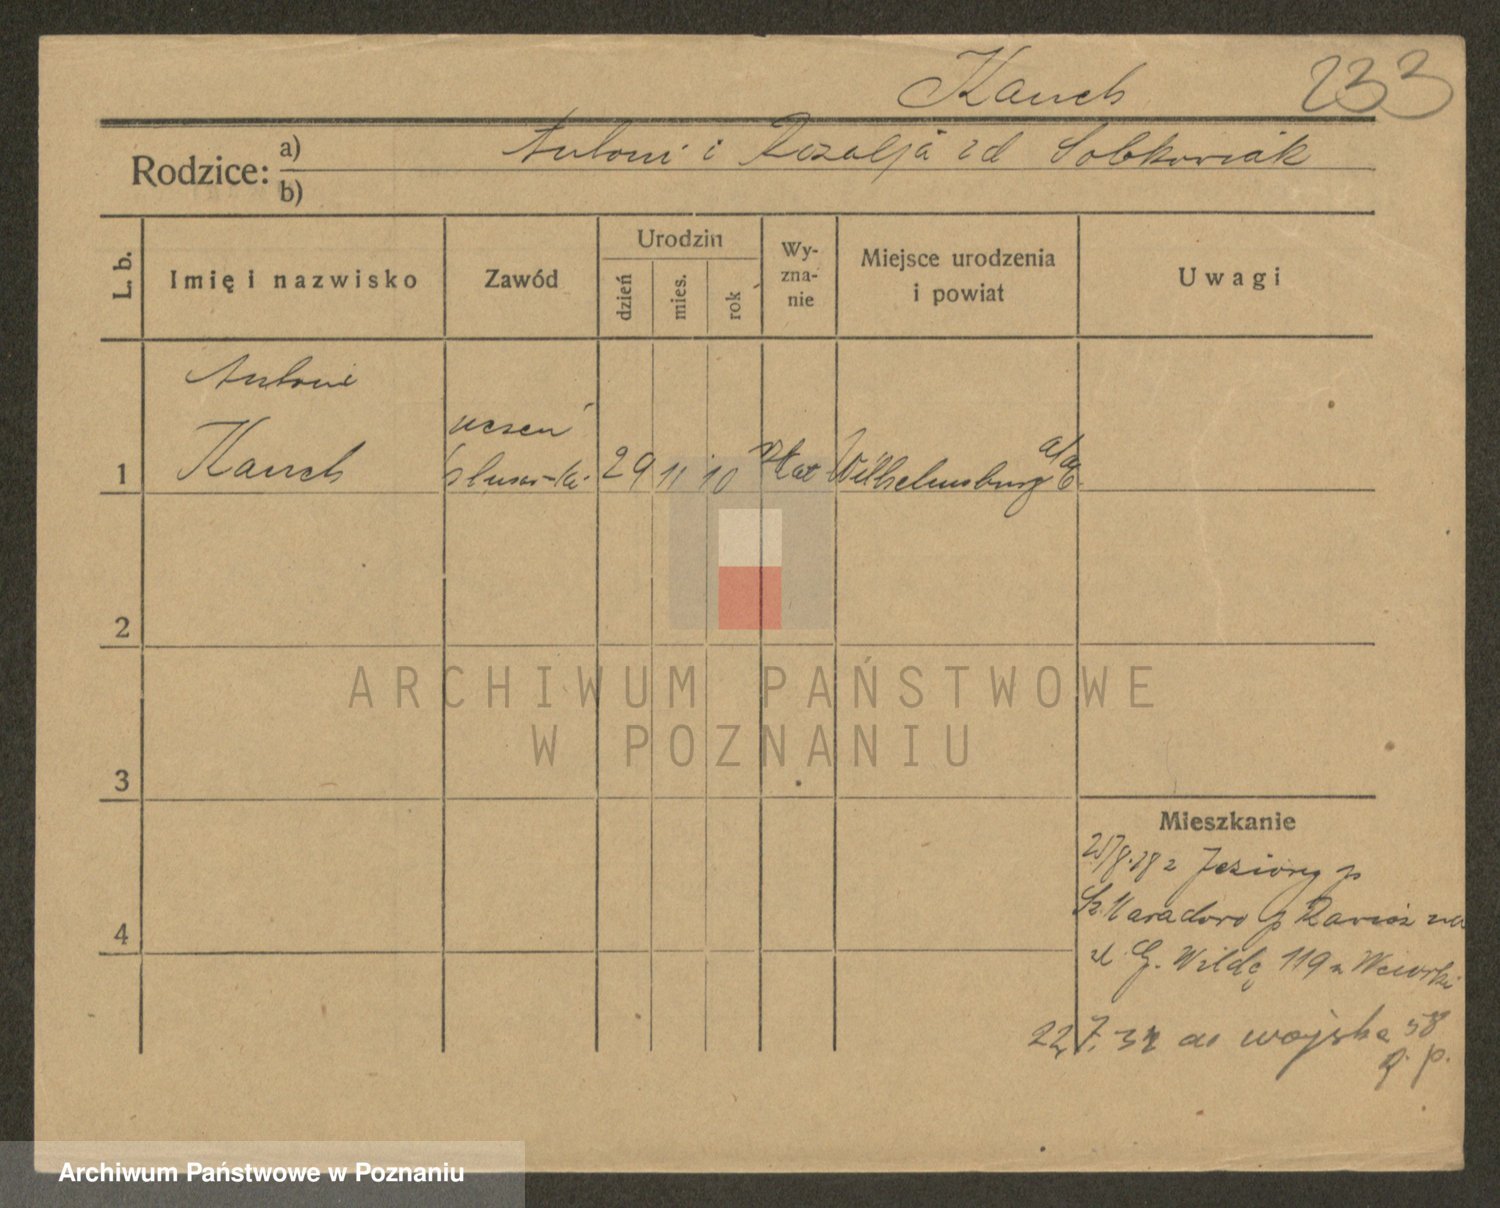 Kauch 233
Rodzice: a) Antoni i Rozalja zd Sobkowiak
b)
L. b.
Imię i nazwisko
Zawód
Urodzin
dzień
mies.
rok
Wy-
zna-
nie
Miejsce urodzenia
i powiat
Uwagi
Antoni
Kauch
uczeń
ślusar-ki
29 11 10
kat
Wilhelmsburg a/E
1
2
3
4
Mieszkanie
25/8.28 z Jeziory p
p Rawicz na
ul G. Wildę 119 u
22/7. 32 do wojska 58
p. p.
ARCHIWUM PAŃSTWOWE
W POZNANIU
Archiwum Państwowe w Poznaniu